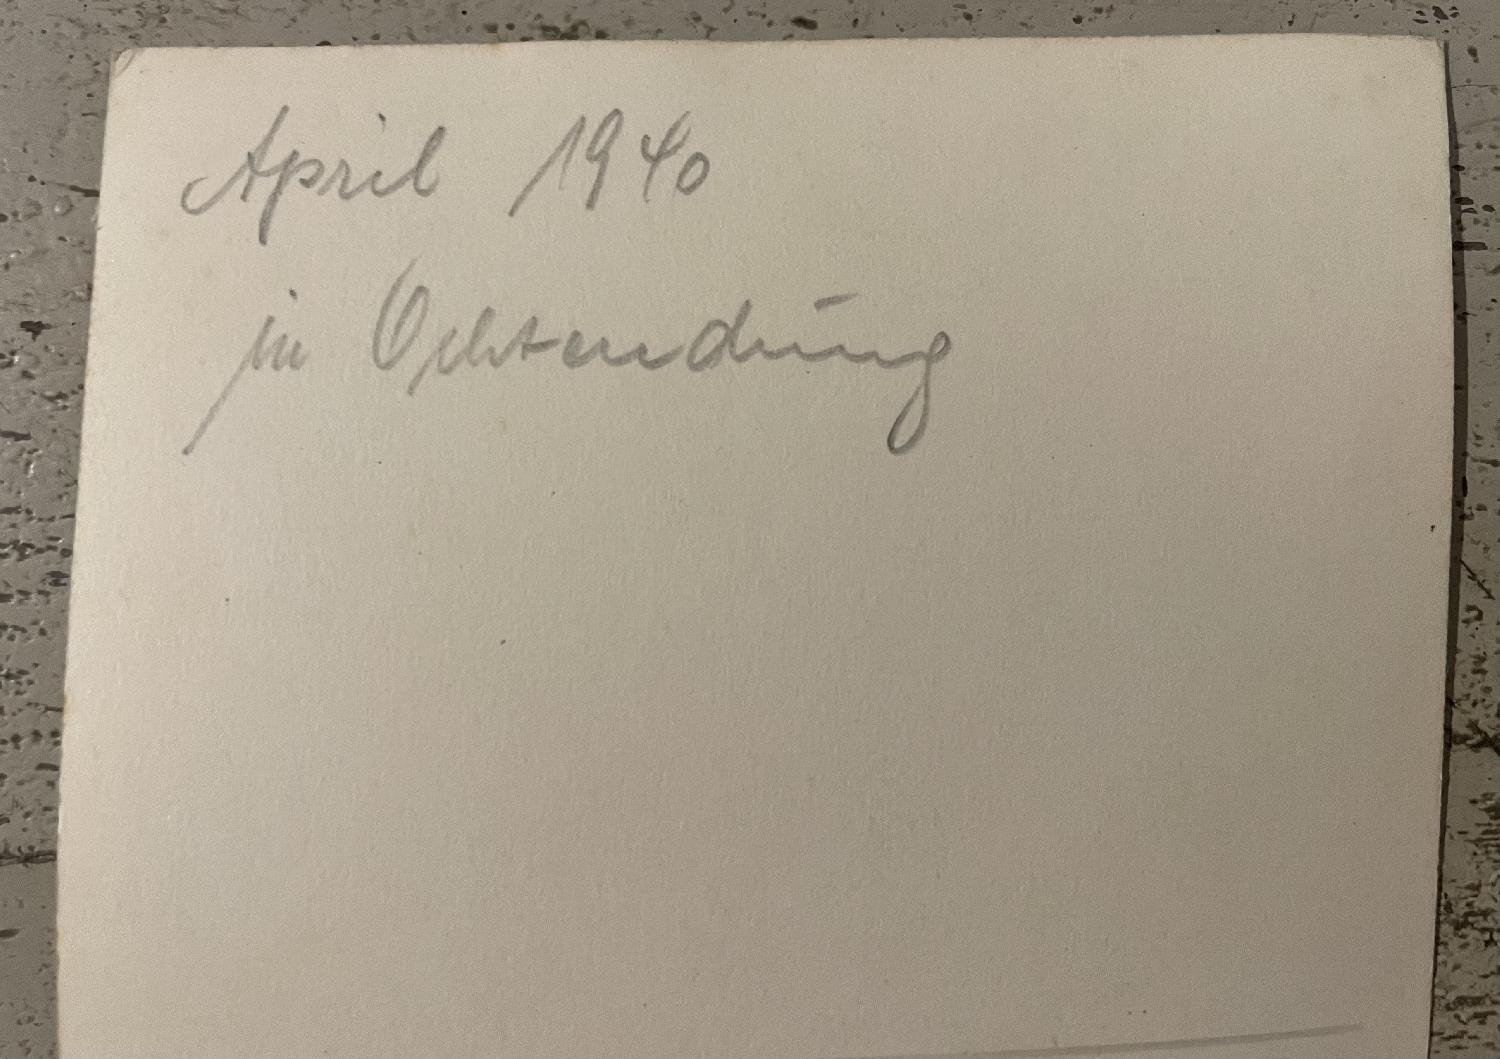 April 1940
in Ochtendung